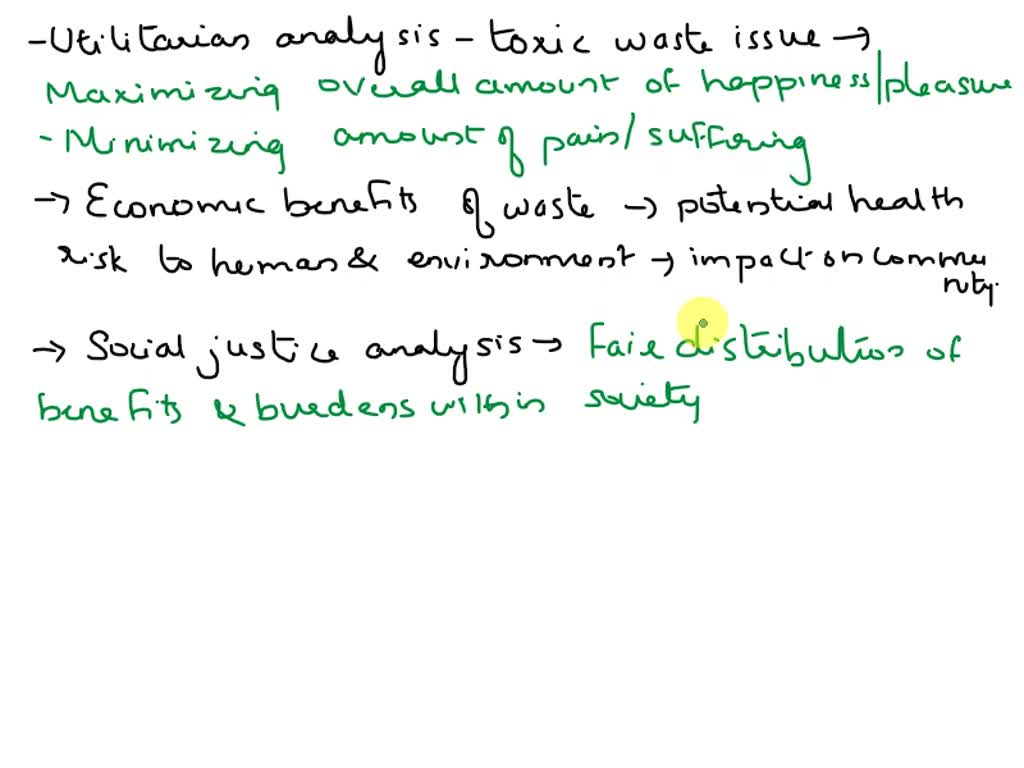 - Utilitarian analysis - toxic waste issue →
Maximizing overall amount of happiness/pleasure
- Minimizing amount of pain/suffering
→ Economic benefits of waste → potential health
risk to human & environment → impact on commu
nity.
→ Social justice analysis → Fair distribution of
benefits & burdens within society